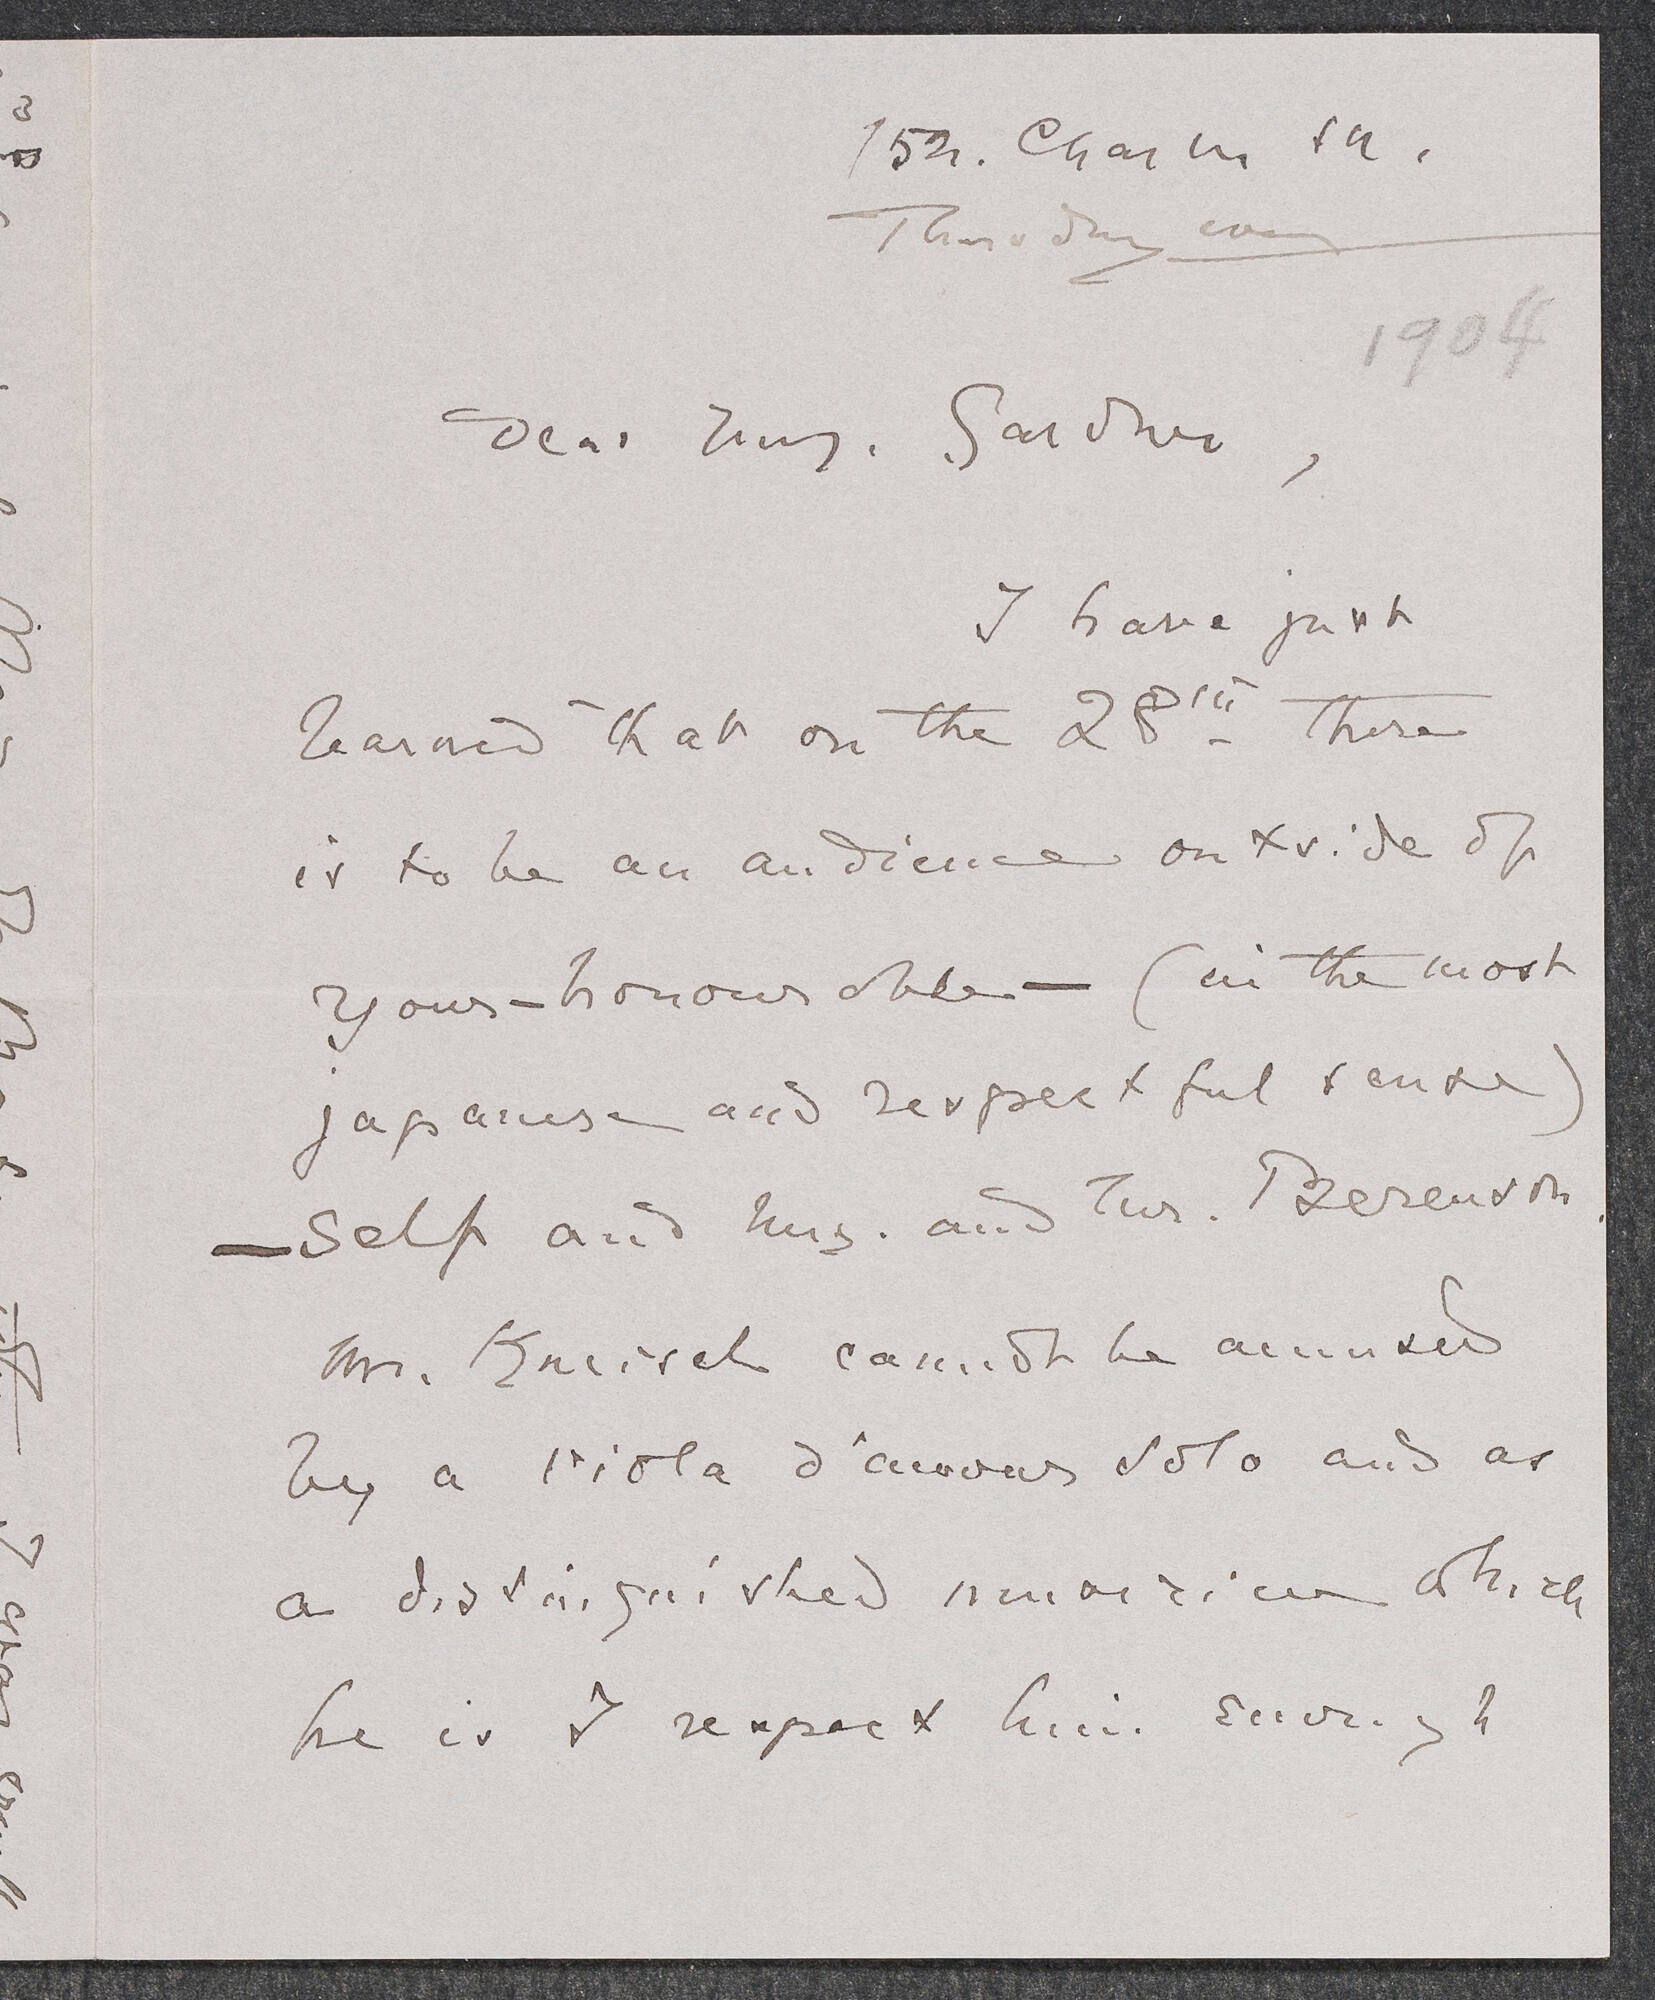 152. Charles St.
Thursday eve
1904
Dear Mrs. Gardner,
I have just
learned that on the 28th there
is to be an audience outside of
your-honourable- (in the most
japanese and respectful sense)
-self and Mrs. and Mr. Berenson.
Mr. Kneisel cannot be amused
by a viola d'amour solo and as
a distinguished musician which
he is I respect him enough